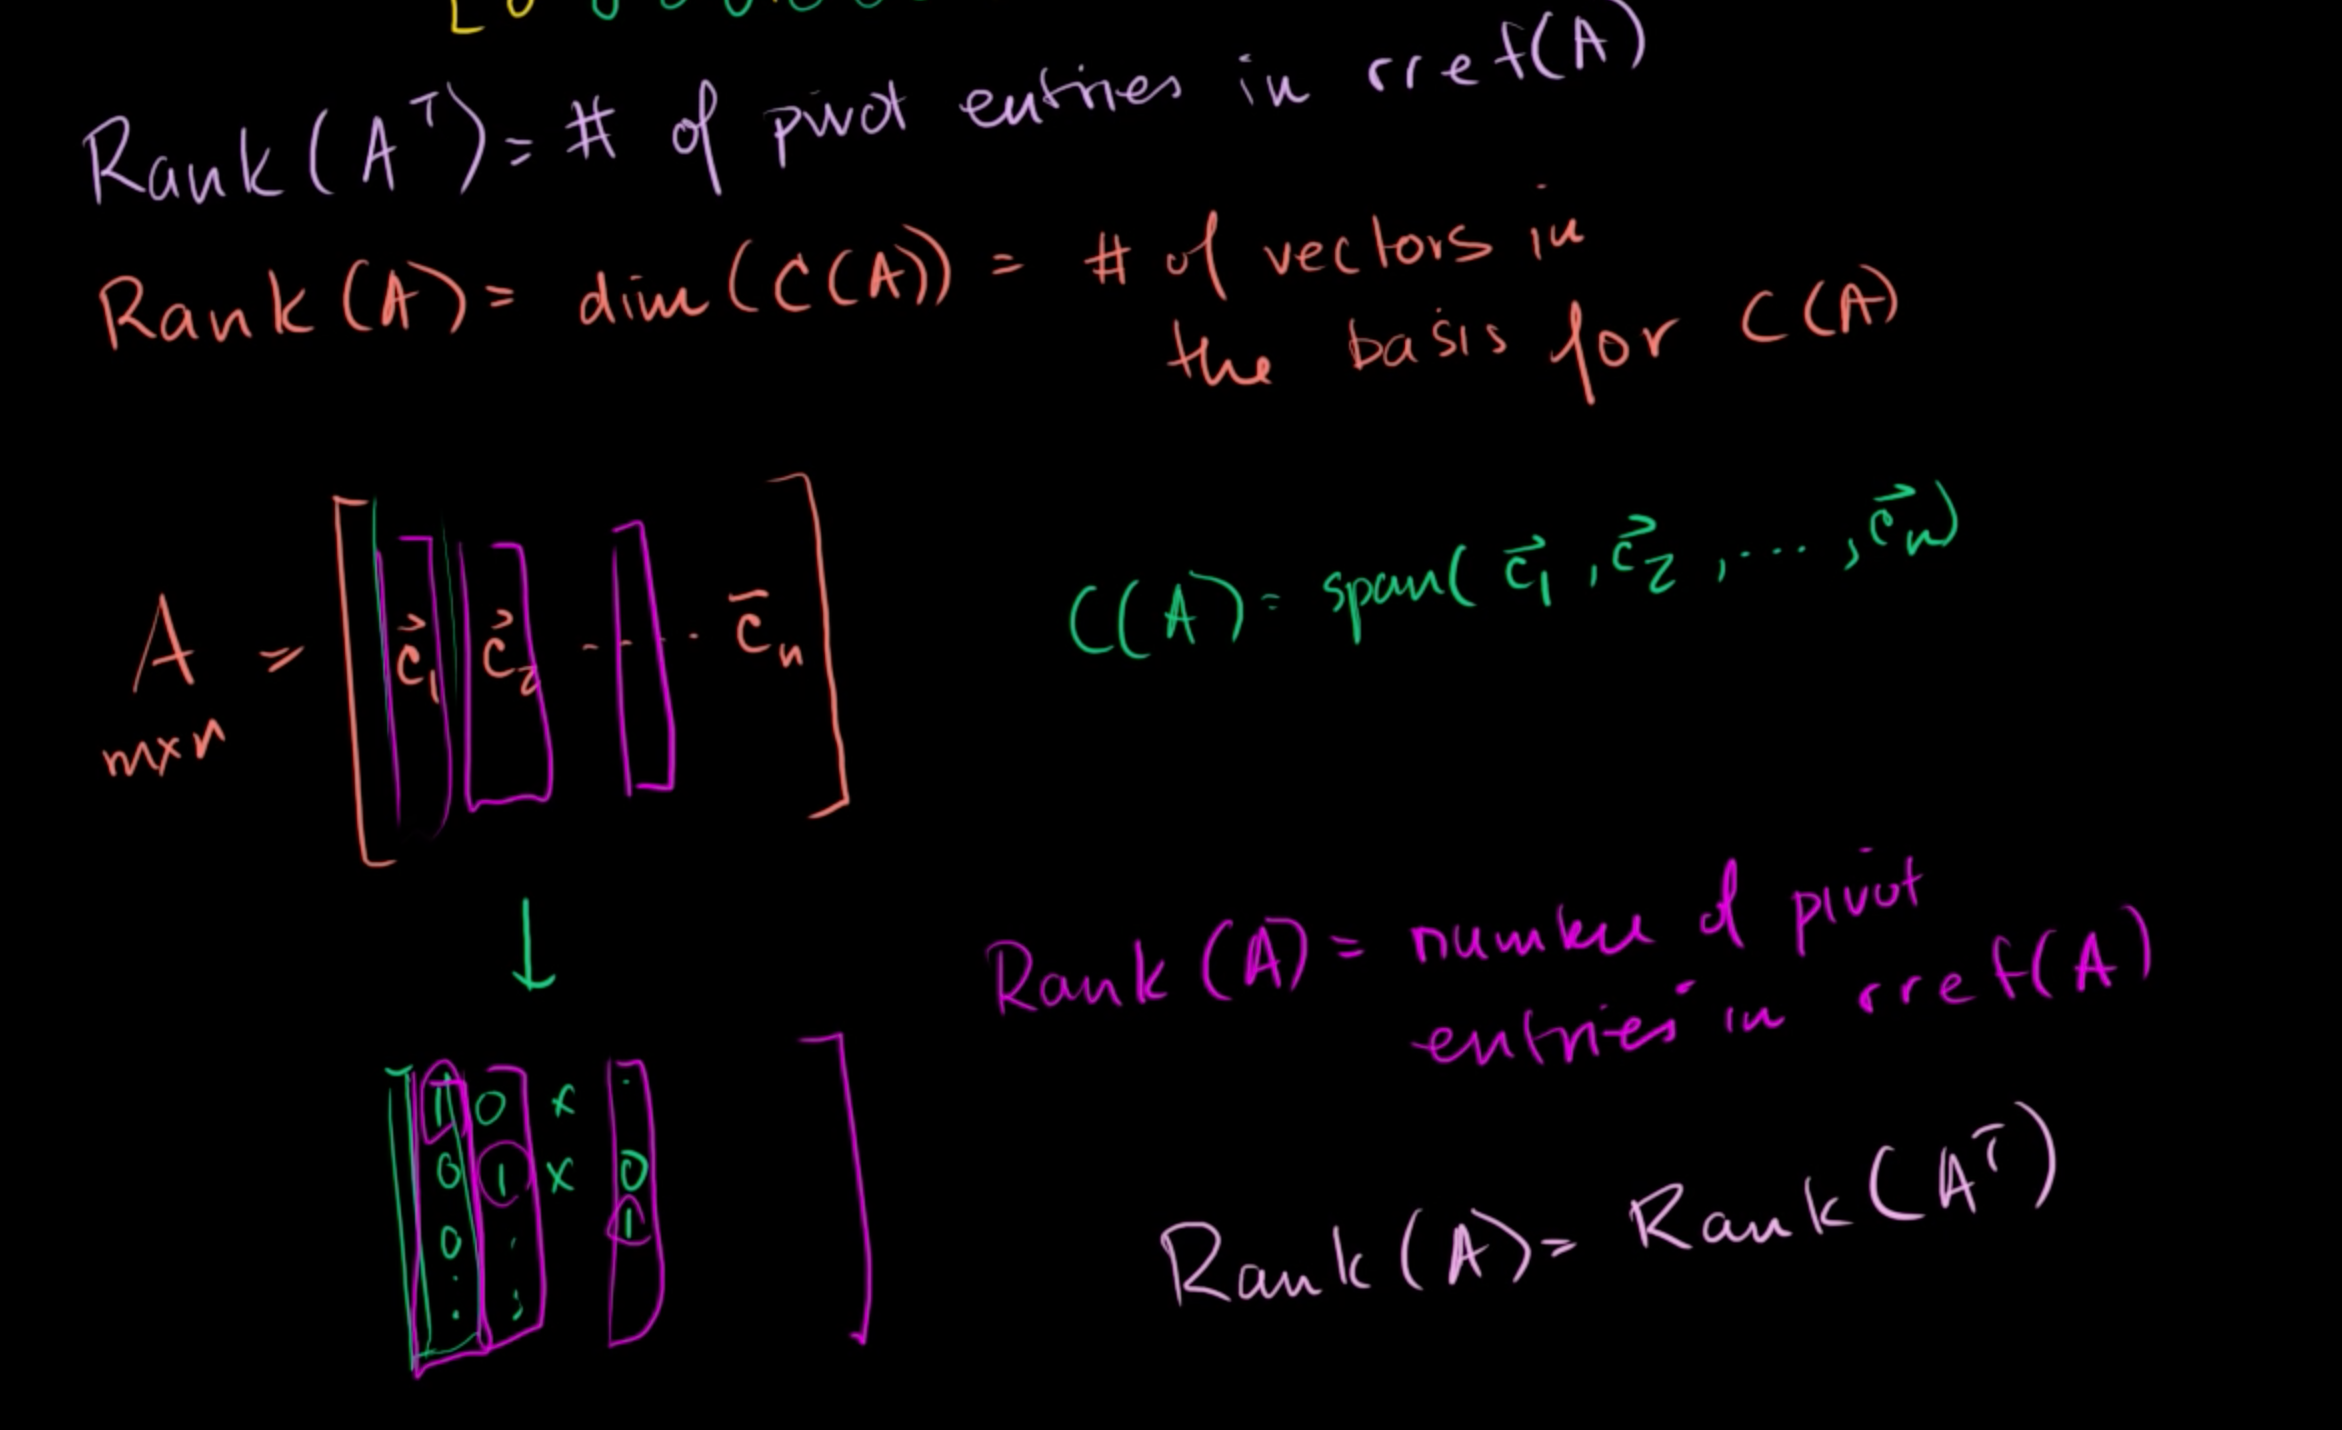 Rank(Aᵀ) = # of pivot entries in rref(A)
Rank(A) = dim(C(A)) = # of vectors in
the basis for C(A)
A = [c⃗₁ c⃗₂ - - · c̄ₙ]
m×n
C(A) = span(c⃗₁, c⃗₂, ..., c⃗ₙ)
Rank(A) = number of pivot
entries in rref(A)
1 0 x ·
0 1 x 0
0 : 1
Rank(A) = Rank(Aᵀ)